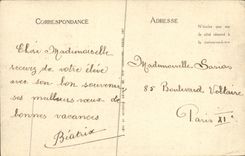 CORRESPONDANCE
ADRESSE
N'écrire que sur
le côté réservé à
la correspondance
Chère Mademoiselle
recevez de votre élève
avec son bon souvenir
ses meilleurs vœux de
bonnes vacances
Béatrix
Mademoiselle
85 Boulevard Voltaire
Paris XIe